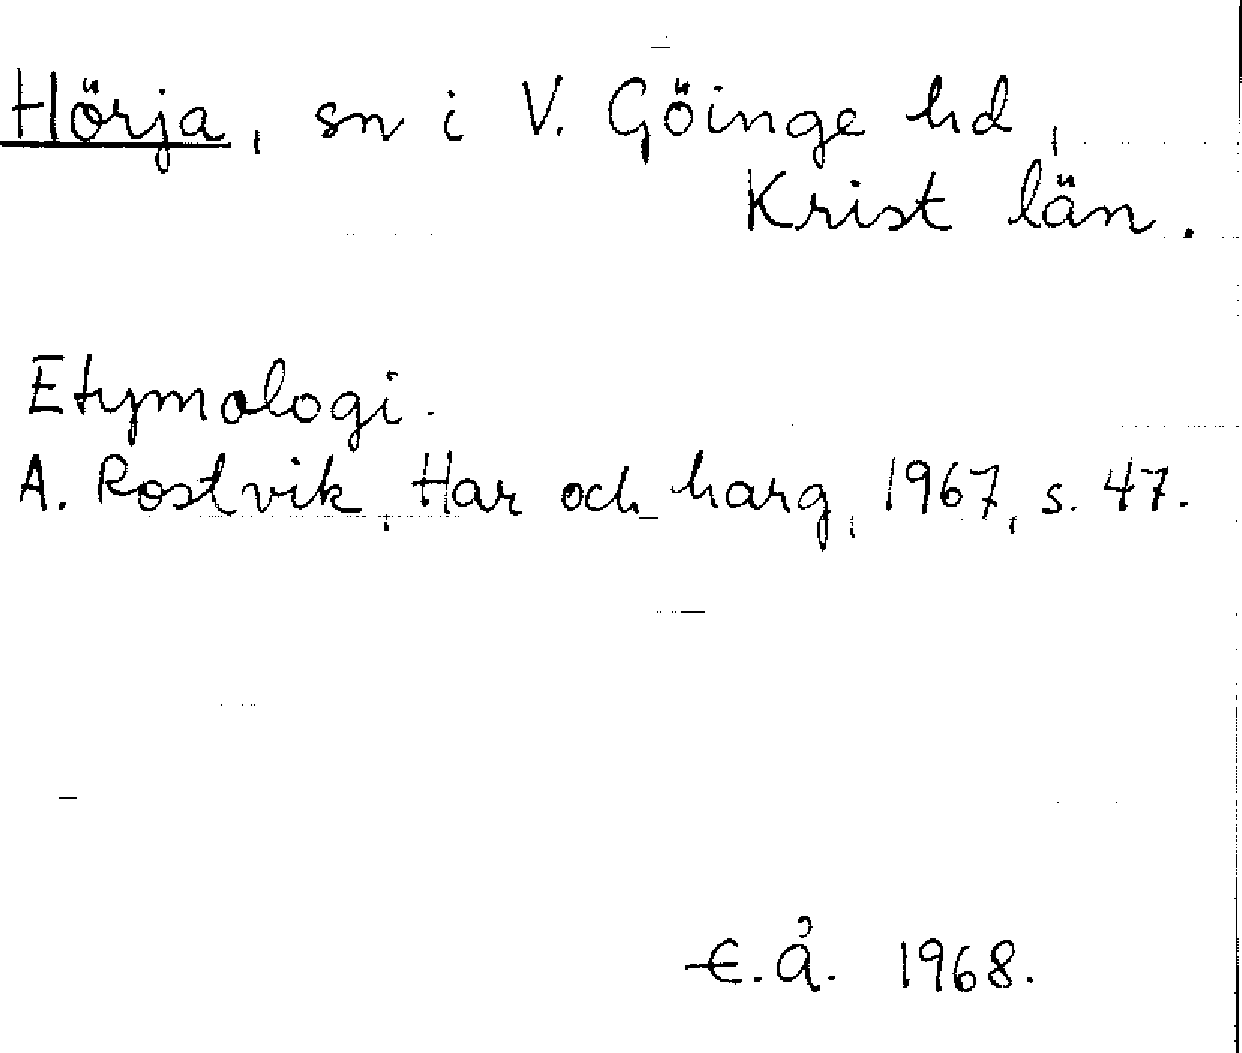 Hörja, sn i V. Göinge hd,
Krist län.
Etymologi.
A. Rostvik, Har och harg, 1967, s. 47.
E.Å. 1968.